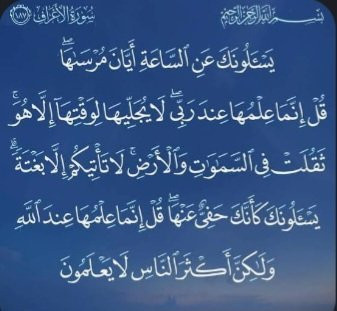 بِسْمِ اللَّهِ الرَّحْمَٰنِ الرَّحِيمِ سُورَةُ الْأَعْرَافِ ١٨٧
يَسْـَٔلُونَكَ عَنِ السَّاعَةِ أَيَّانَ مُرْسَىٰهَا ۖ
قُلْ إِنَّمَا عِلْمُهَا عِندَ رَبِّي ۖ لَا يُجَلِّيهَا لِوَقْتِهَآ إِلَّا هُوَ ۚ
ثَقُلَتْ فِي السَّمَٰوَٰتِ وَالْأَرْضِ ۚ لَا تَأْتِيكُمْ إِلَّا بَغْتَةً ۗ
يَسْـَٔلُونَكَ كَأَنَّكَ حَفِيٌّ عَنْهَا ۖ قُلْ إِنَّمَا عِلْمُهَا عِندَ اللَّهِ
وَلَٰكِنَّ أَكْثَرَ النَّاسِ لَا يَعْلَمُونَ